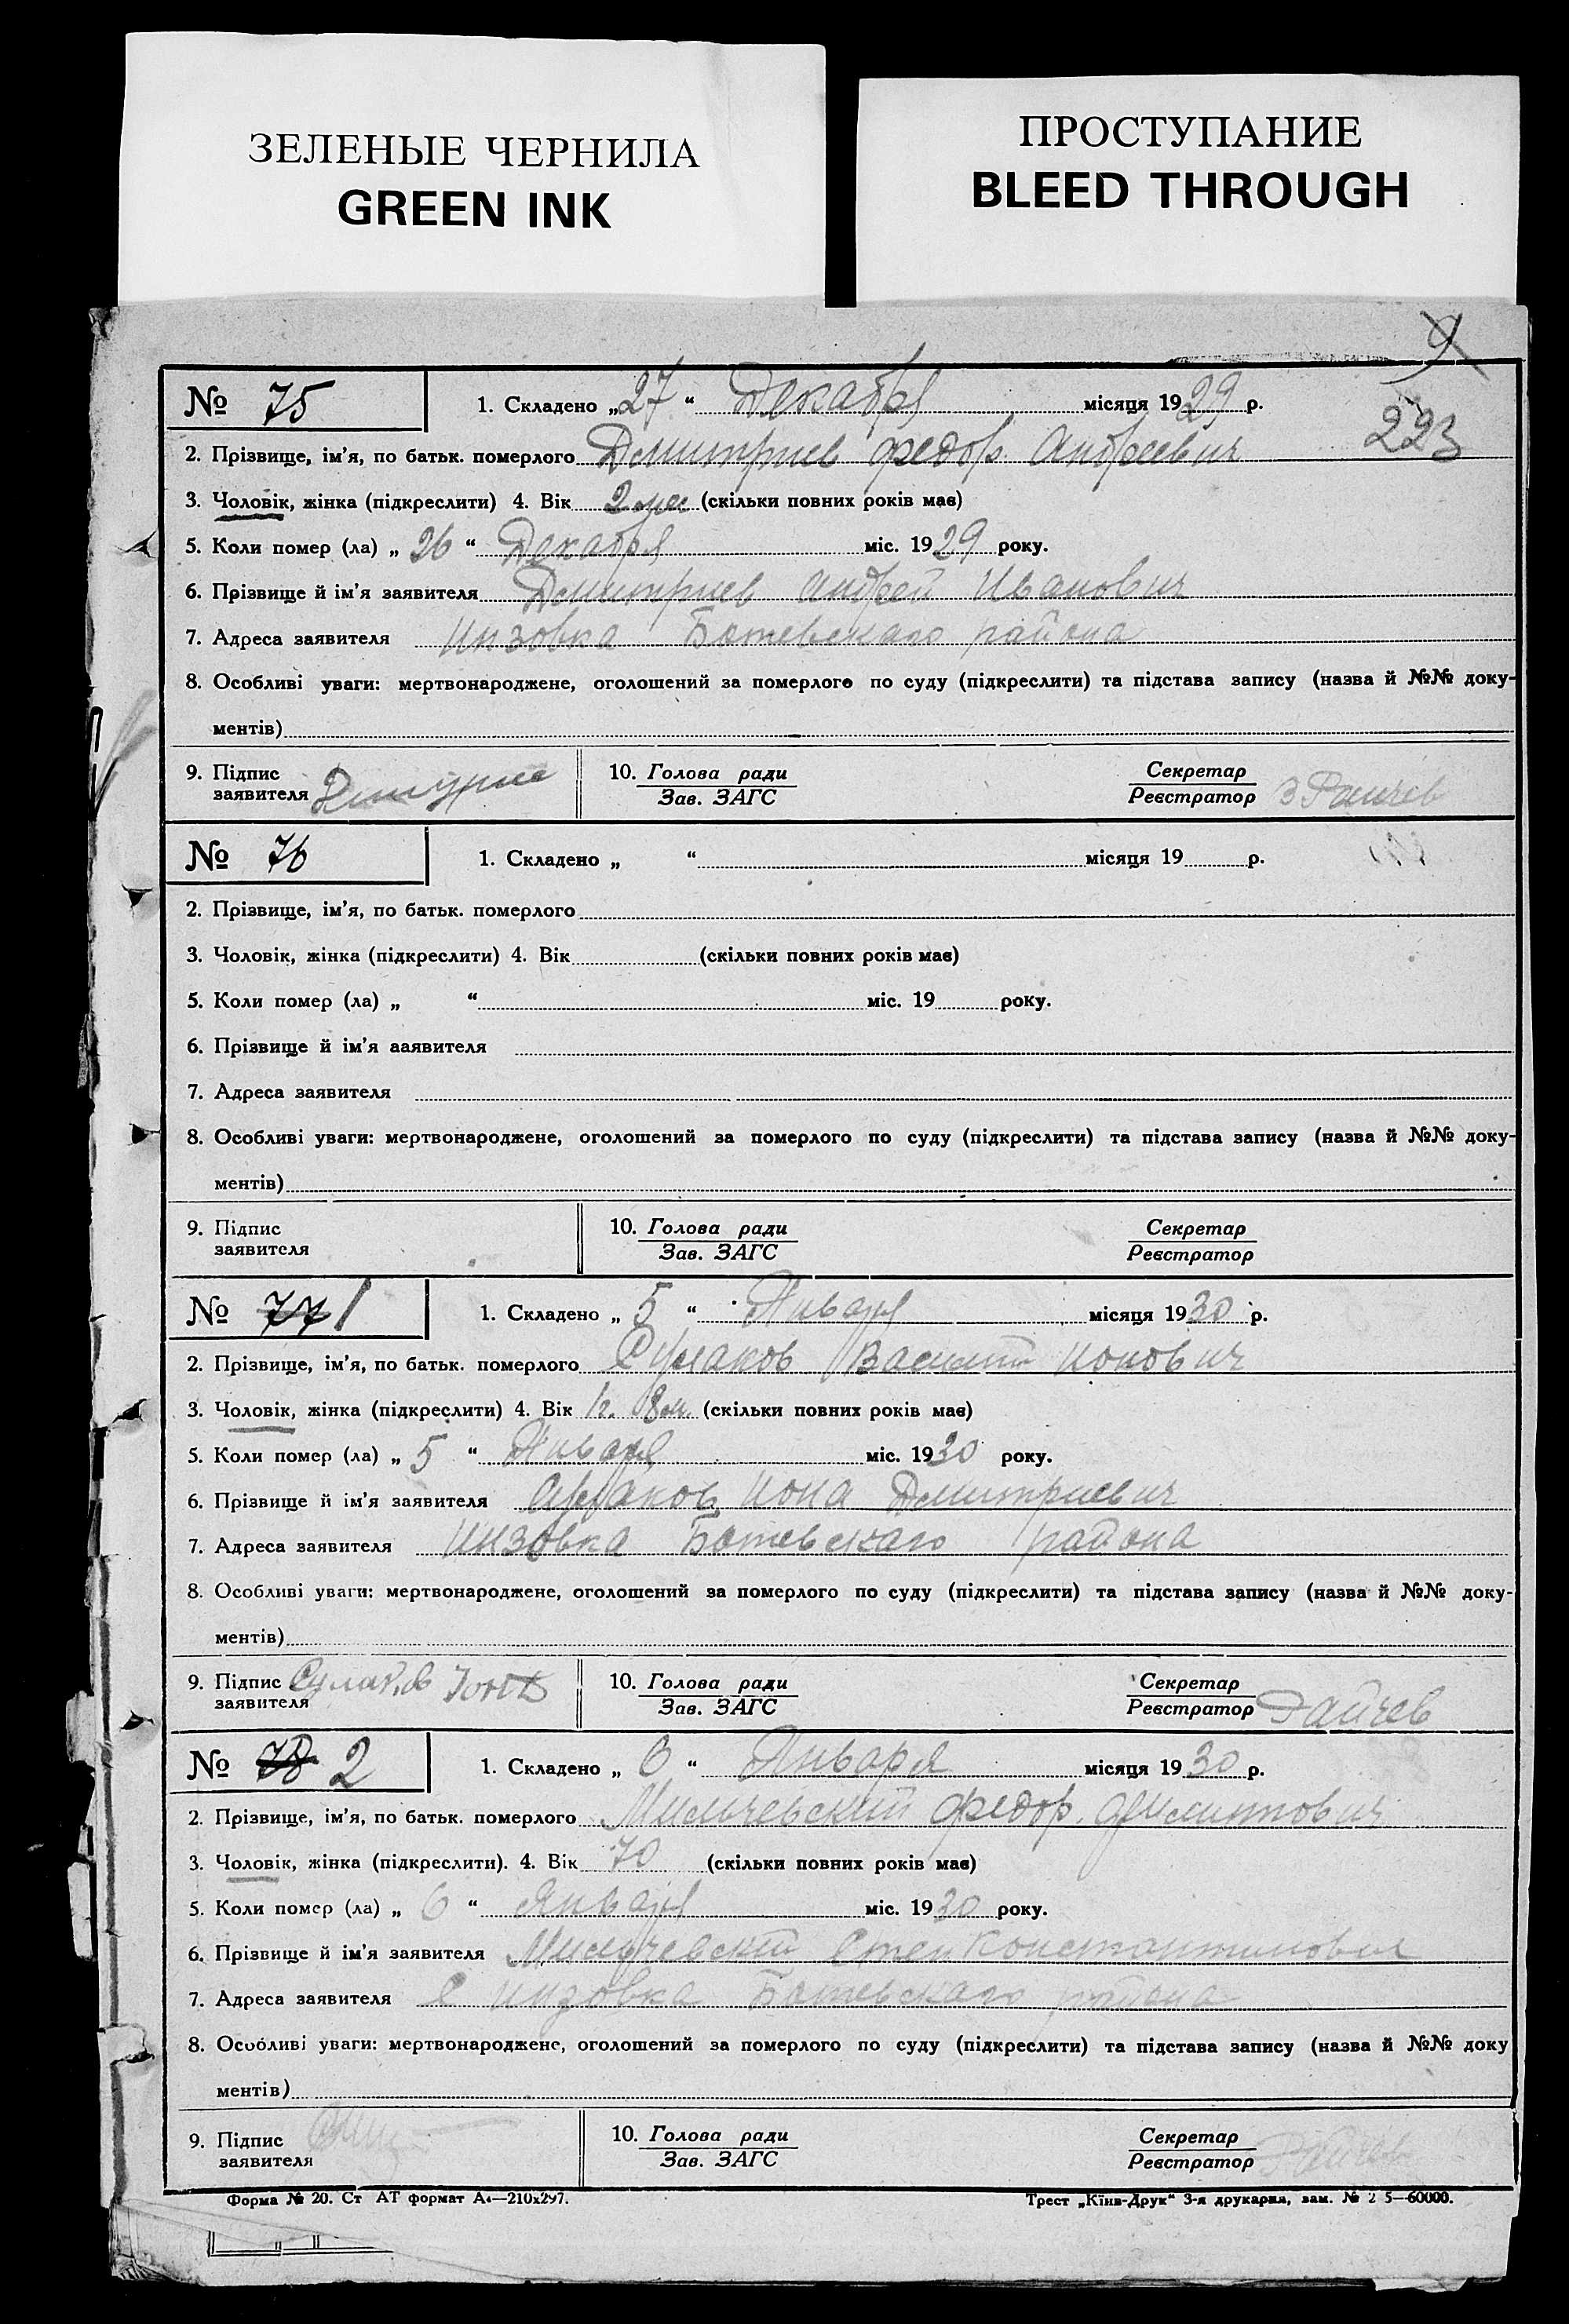 ЗЕЛЕНЫЕ ЧЕРНИЛА
GREEN INK
ПРОСТУПАНИЕ
BLEED THROUGH
9
223
№ 75 1. Складено „27“ Декабря місяця 1929 р.
2. Прізвище, ім’я, по батьк. померлого Димитриев Федор Андреевич
3. Чоловік, жінка (підкреслити) 4. Вік 2 мес (скільки повних років має)
5. Коли помер (ла) „26“ Декабря міс. 1929 року.
6. Прізвище й ім’я заявителя Димитриев Андрей Иванович
7. Адреса заявителя Инзовка Ботевскаго района
8. Особливі уваги: мертвонароджене, оголошений за померлого по суду (підкреслити) та підстава запису (назва й №№ доку-
ментів)
9. Підпис заявителя
10. Голова ради
Зав. ЗАГС
Секретар
Реєстратор
№ 76 1. Складено „ “ місяця 19 р.
2. Прізвище, ім’я, по батьк. померлого
3. Чоловік, жінка (підкреслити) 4. Вік (скільки повних років має)
5. Коли помер (ла) „ “ міс. 19 року.
6. Прізвище й ім’я ааявителя
7. Адреса заявителя
8. Особливі уваги: мертвонароджене, оголошений за померлого по суду (підкреслити) та підстава запису (назва й №№ доку-
ментів)
9. Підпис заявителя
10. Голова ради
Зав. ЗАГС
Секретар
Реєстратор
№ 77 1 1. Складено „5“ Января місяця 1930 р.
2. Прізвище, ім’я, по батьк. померлого Сулаков Василий Ионович
3. Чоловік, жінка (підкреслити) 4. Вік 1г. 8м. (скільки повних років має)
5. Коли помер (ла) „5“ Января міс. 1930 року.
6. Прізвище й ім’я заявителя Сулаков Иона Димитриевич
7. Адреса заявителя Инзовка Ботевскаго района
8. Особливі уваги: мертвонароджене, оголошений за померлого по суду (підкреслити) та підстава запису (назва й №№ доку-
ментів)
9. Підпис заявителя Сулаков
10. Голова ради
Зав. ЗАГС
Секретар
Реєстратор Райчев
№ 78 2 1. Складено „6“ Января місяця 1930 р.
2. Прізвище, ім’я, по батьк. померлого Мильчевский Федор
3. Чоловік, жінка (підкреслити). 4. Вік 70 (скільки повних років має)
5. Коли помер (ла) „6“ Января міс. 1930 року.
6. Прізвище й ім’я заявителя Мильчевский Степ Константинович
7. Адреса заявителя С Инзовка Ботевскаго района
8. Особливі уваги: мертвонароджене, оголошений за померлого по суду (підкреслити) та підстава запису (назва й №№ доку
ментів)
9. Підпис заявителя
10. Голова ради
Зав. ЗАГС
Секретар
Реєстратор Райчев
Форма № 20. Ст АТ формат А4—210х297.
Трест „Київ-Друк“ 3-я друкарня, зам. № 2 5—60000.